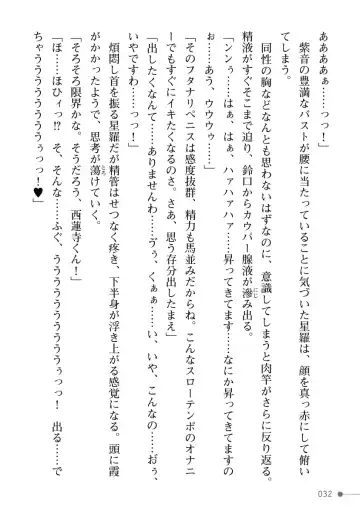 ああああぁ……っっ！
　紫音の豊満なバストが腰に当たっていることに気づいた星羅は、顔を真っ赤にして俯い
てしまう。
　同性の胸などなんとも思わないはずなのに、意識してしまうと肉竿がさらに反り返る。
精液がすぐそこまで迫り、鈴口からカウパー腺液が滲み出る。
「ンンぅ……はぁ、はぁ、ハァハァハァ……昇ってきてます……なにか昇ってきてますの
ぉ……あう、ウウウゥ……っっ！」
「そのフタナリペニスは感度抜群、精力も馬並みだからね。こんなスローテンポのオナニ
ーでもすぐにイキたくなるのさ。さあ、思う存分出したまえ」
「出したくなんて……ありませんわ……ヴぅ、くぁぁ……い、いや、こんなの……おぅ、
いやですわ……っっ！」
　煩悶し首を振る星羅だが精管はせつなく疼き、下半身が浮き上がる感覚になる。頭に霞
がかかったようで、思考が蕩けていく。
「そろそろ限界かな。そうだろう、西蓮寺くん！」
「ほ……ほひィっ!?　そ、そんな……ふぐ、うううううううううぅぅっっ！　出る……で
ちゃうううううううぅぅっっ！♥」
032